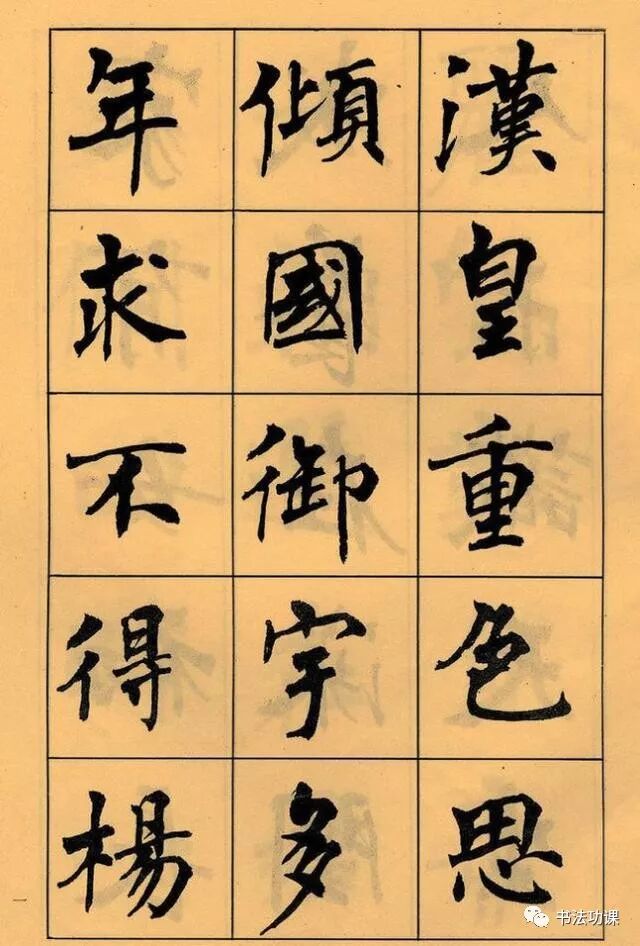 漢皇重色思
傾國御宇多
年求不得楊
一
书法功课